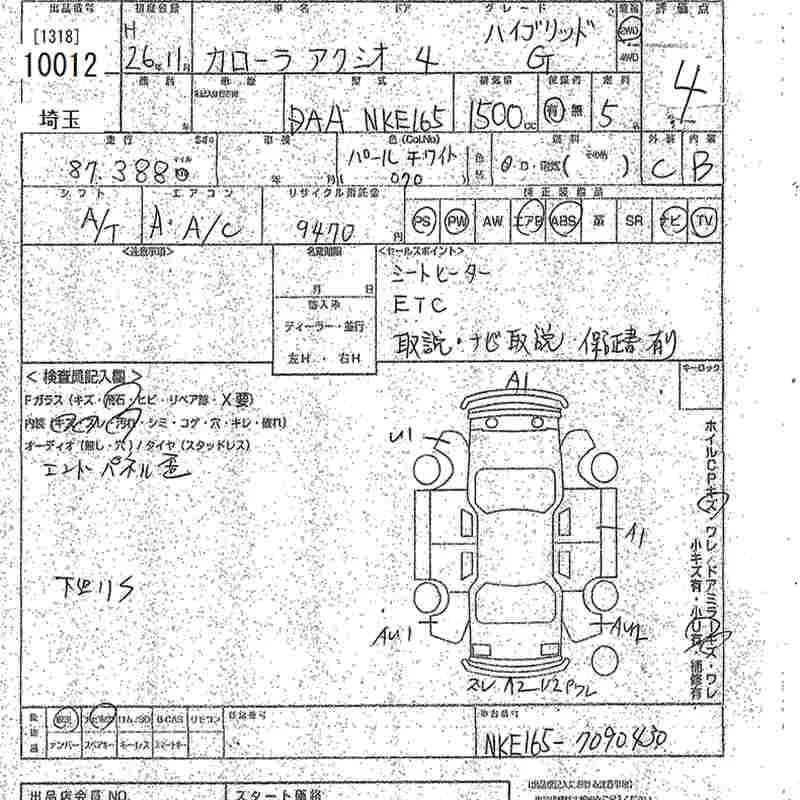 出品番号 初度登録 車名 ドア グレード 評価点
[1318]
10012
H
26年11月
カローラ アクシオ 4
ハイブリッド
G
2WD
4WD
4
埼玉
車歴 型式 排気量 定員
DAA NKE165
1500cc
有 無
5名
走行 車検 色(Col.No) 外装 内装
87,388
年 月
パールホワイト
070
C B
シフト エアコン リサイクル預託金 純正装備品
A/T
A・A/C
9470円
PS PW AW エアB ABS 革 SR ナビ TV
<注意事項>
名変期限
月 日
ディーラー・並行
左H・右H
<セールスポイント>
シートヒーター
ETC
取説・ナビ取説 保証書有り
キーロック
<検査員記入欄>
Fガラス(キズ・飛石・ヒビ・リペア跡・X要)
内装(キズ・スレ・汚れ・シミ・コゲ・穴・キレ・破れ)
オーディオ(無し・穴)/タイヤ(スタッドレス)
エンドパネル歪
下廻りS
A1
U1
A1
AU1
AU2
スレ A2 U2 Pワレ
ホイルCPキズ・ワレ/ドアミラーキズ・ワレ
小キズ有・小U有・補修有
取説 ナビ取説 B-CAS リモコン
ナンバー スペアキー キーレス スマートキー
登録番号
車台番号
NKE165-7090430
出品店会員NO.
スタート価格